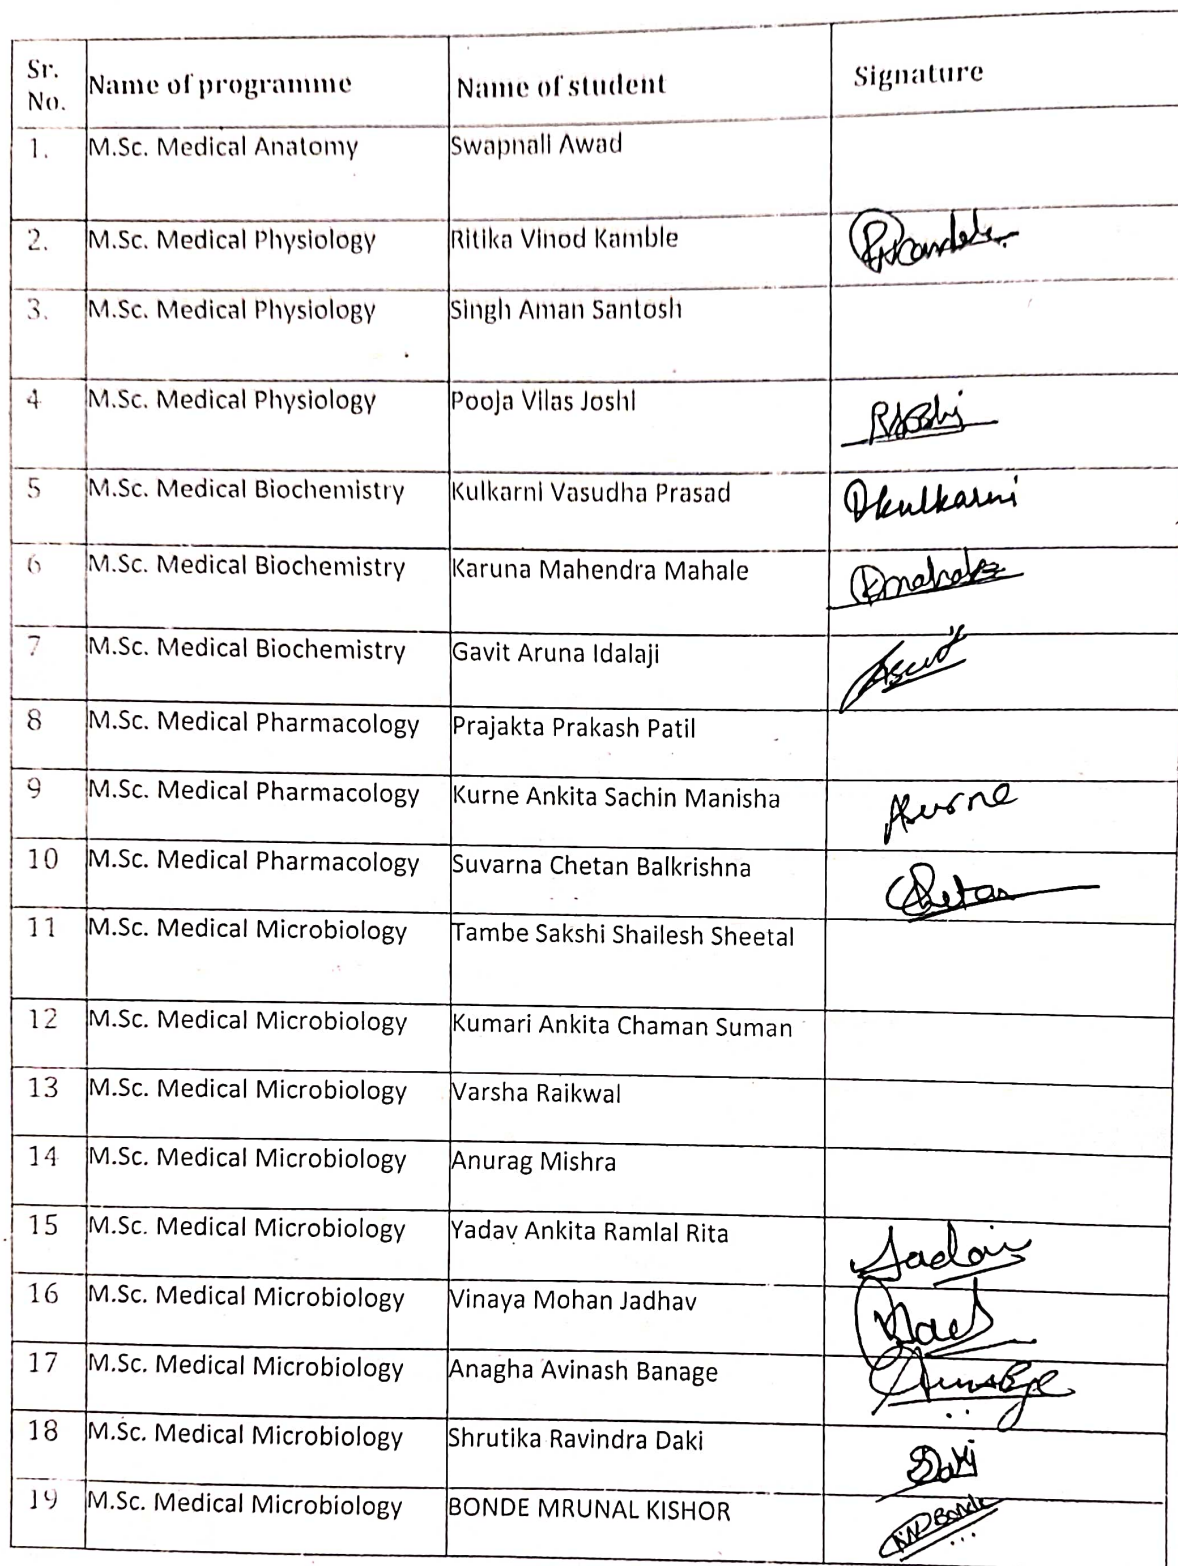 Sr. No. Name of programme Name of student Signature
1. M.Sc. Medical Anatomy Swapnali Awad
2. M.Sc. Medical Physiology Ritika Vinod Kamble
3. M.Sc. Medical Physiology Singh Aman Santosh
4 M.Sc. Medical Physiology Pooja Vilas Joshi
5 M.Sc. Medical Biochemistry Kulkarni Vasudha Prasad Vkulkarni
6 M.Sc. Medical Biochemistry Karuna Mahendra Mahale Kmahale
7 M.Sc. Medical Biochemistry Gavit Aruna Idalaji
8 M.Sc. Medical Pharmacology Prajakta Prakash Patil
9 M.Sc. Medical Pharmacology Kurne Ankita Sachin Manisha Akurne
10 M.Sc. Medical Pharmacology Suvarna Chetan Balkrishna Chetan
11 M.Sc. Medical Microbiology Tambe Sakshi Shailesh Sheetal
12 M.Sc. Medical Microbiology Kumari Ankita Chaman Suman
13 M.Sc. Medical Microbiology Varsha Raikwal
14 M.Sc. Medical Microbiology Anurag Mishra
15 M.Sc. Medical Microbiology Yadav Ankita Ramlal Rita
16 M.Sc. Medical Microbiology Vinaya Mohan Jadhav
17 M.Sc. Medical Microbiology Anagha Avinash Banage
18 M.Sc. Medical Microbiology Shrutika Ravindra Daki SDaki
19 M.Sc. Medical Microbiology BONDE MRUNAL KISHOR